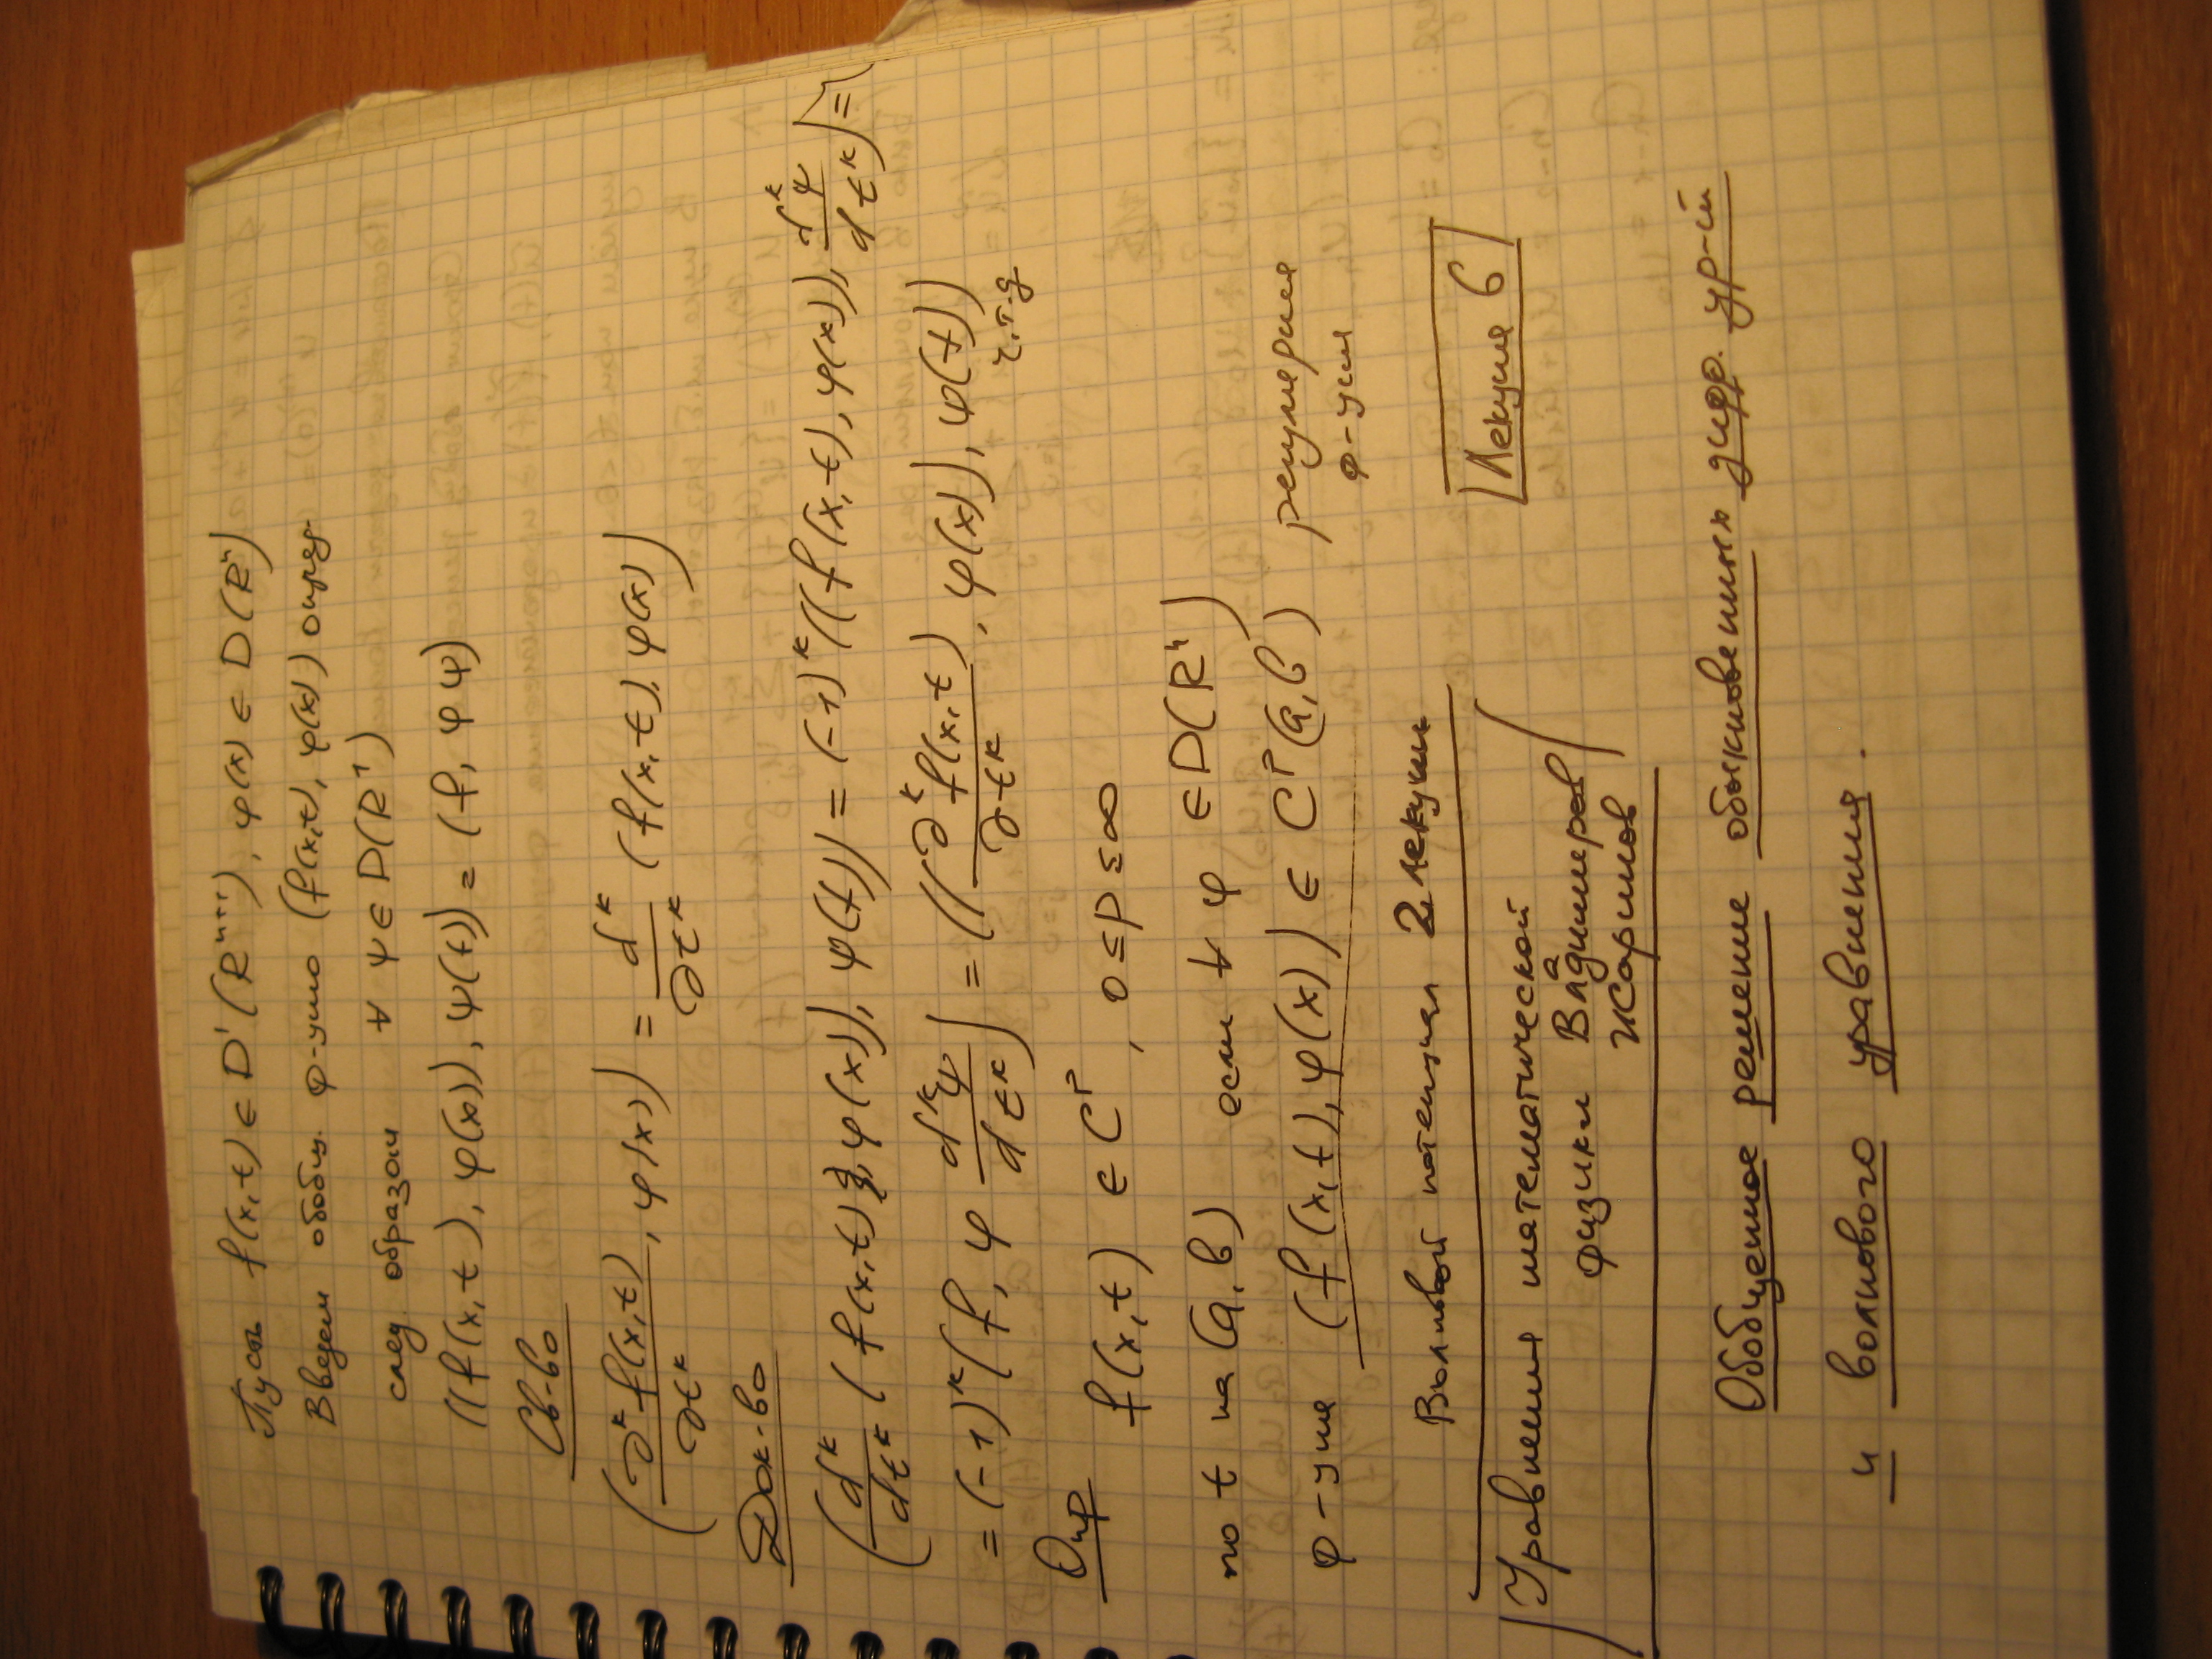 Пусть f(x,t) ∈ D'(R^{n+1}), φ(x) ∈ D(R^n)
Введем обобщ. ф-цию (f(x,t), φ(x)) опред.
след. образом ∀ ψ ∈ D(R^1)
((f(x,t), φ(x)), ψ(t)) = (f, φψ)
Св-во
(∂^k f(x,t)/∂t^k, φ(x)) = d^k/∂t^k (f(x,t), φ(x))
Док-во
(d^k/dt^k (f(x,t), φ(x)), ψ(t)) = (-1)^k ((f(x,t), φ(x)), d^kψ/dt^k) =
= (-1)^k (f, φ d^kψ/dt^k) = ((∂^k f(x,t)/∂t^k, φ(x)), ψ(t))
ч.т.д
Опр f(x,t) ∈ C^p, 0 ≤ p ≤ ∞
по t на (a,b) если ∀ φ ∈ D(R^n)
ф-ция (f(x,t), φ(x)) ∈ C^p(a,b) регулярная ф-ция
Волновой потенциал 2 лекции
Уравнения математической физики Владимиров Жаринов
Лекция 6
Обобщенное решение обыкновенных дифф. ур-й
и волнового уравнения.